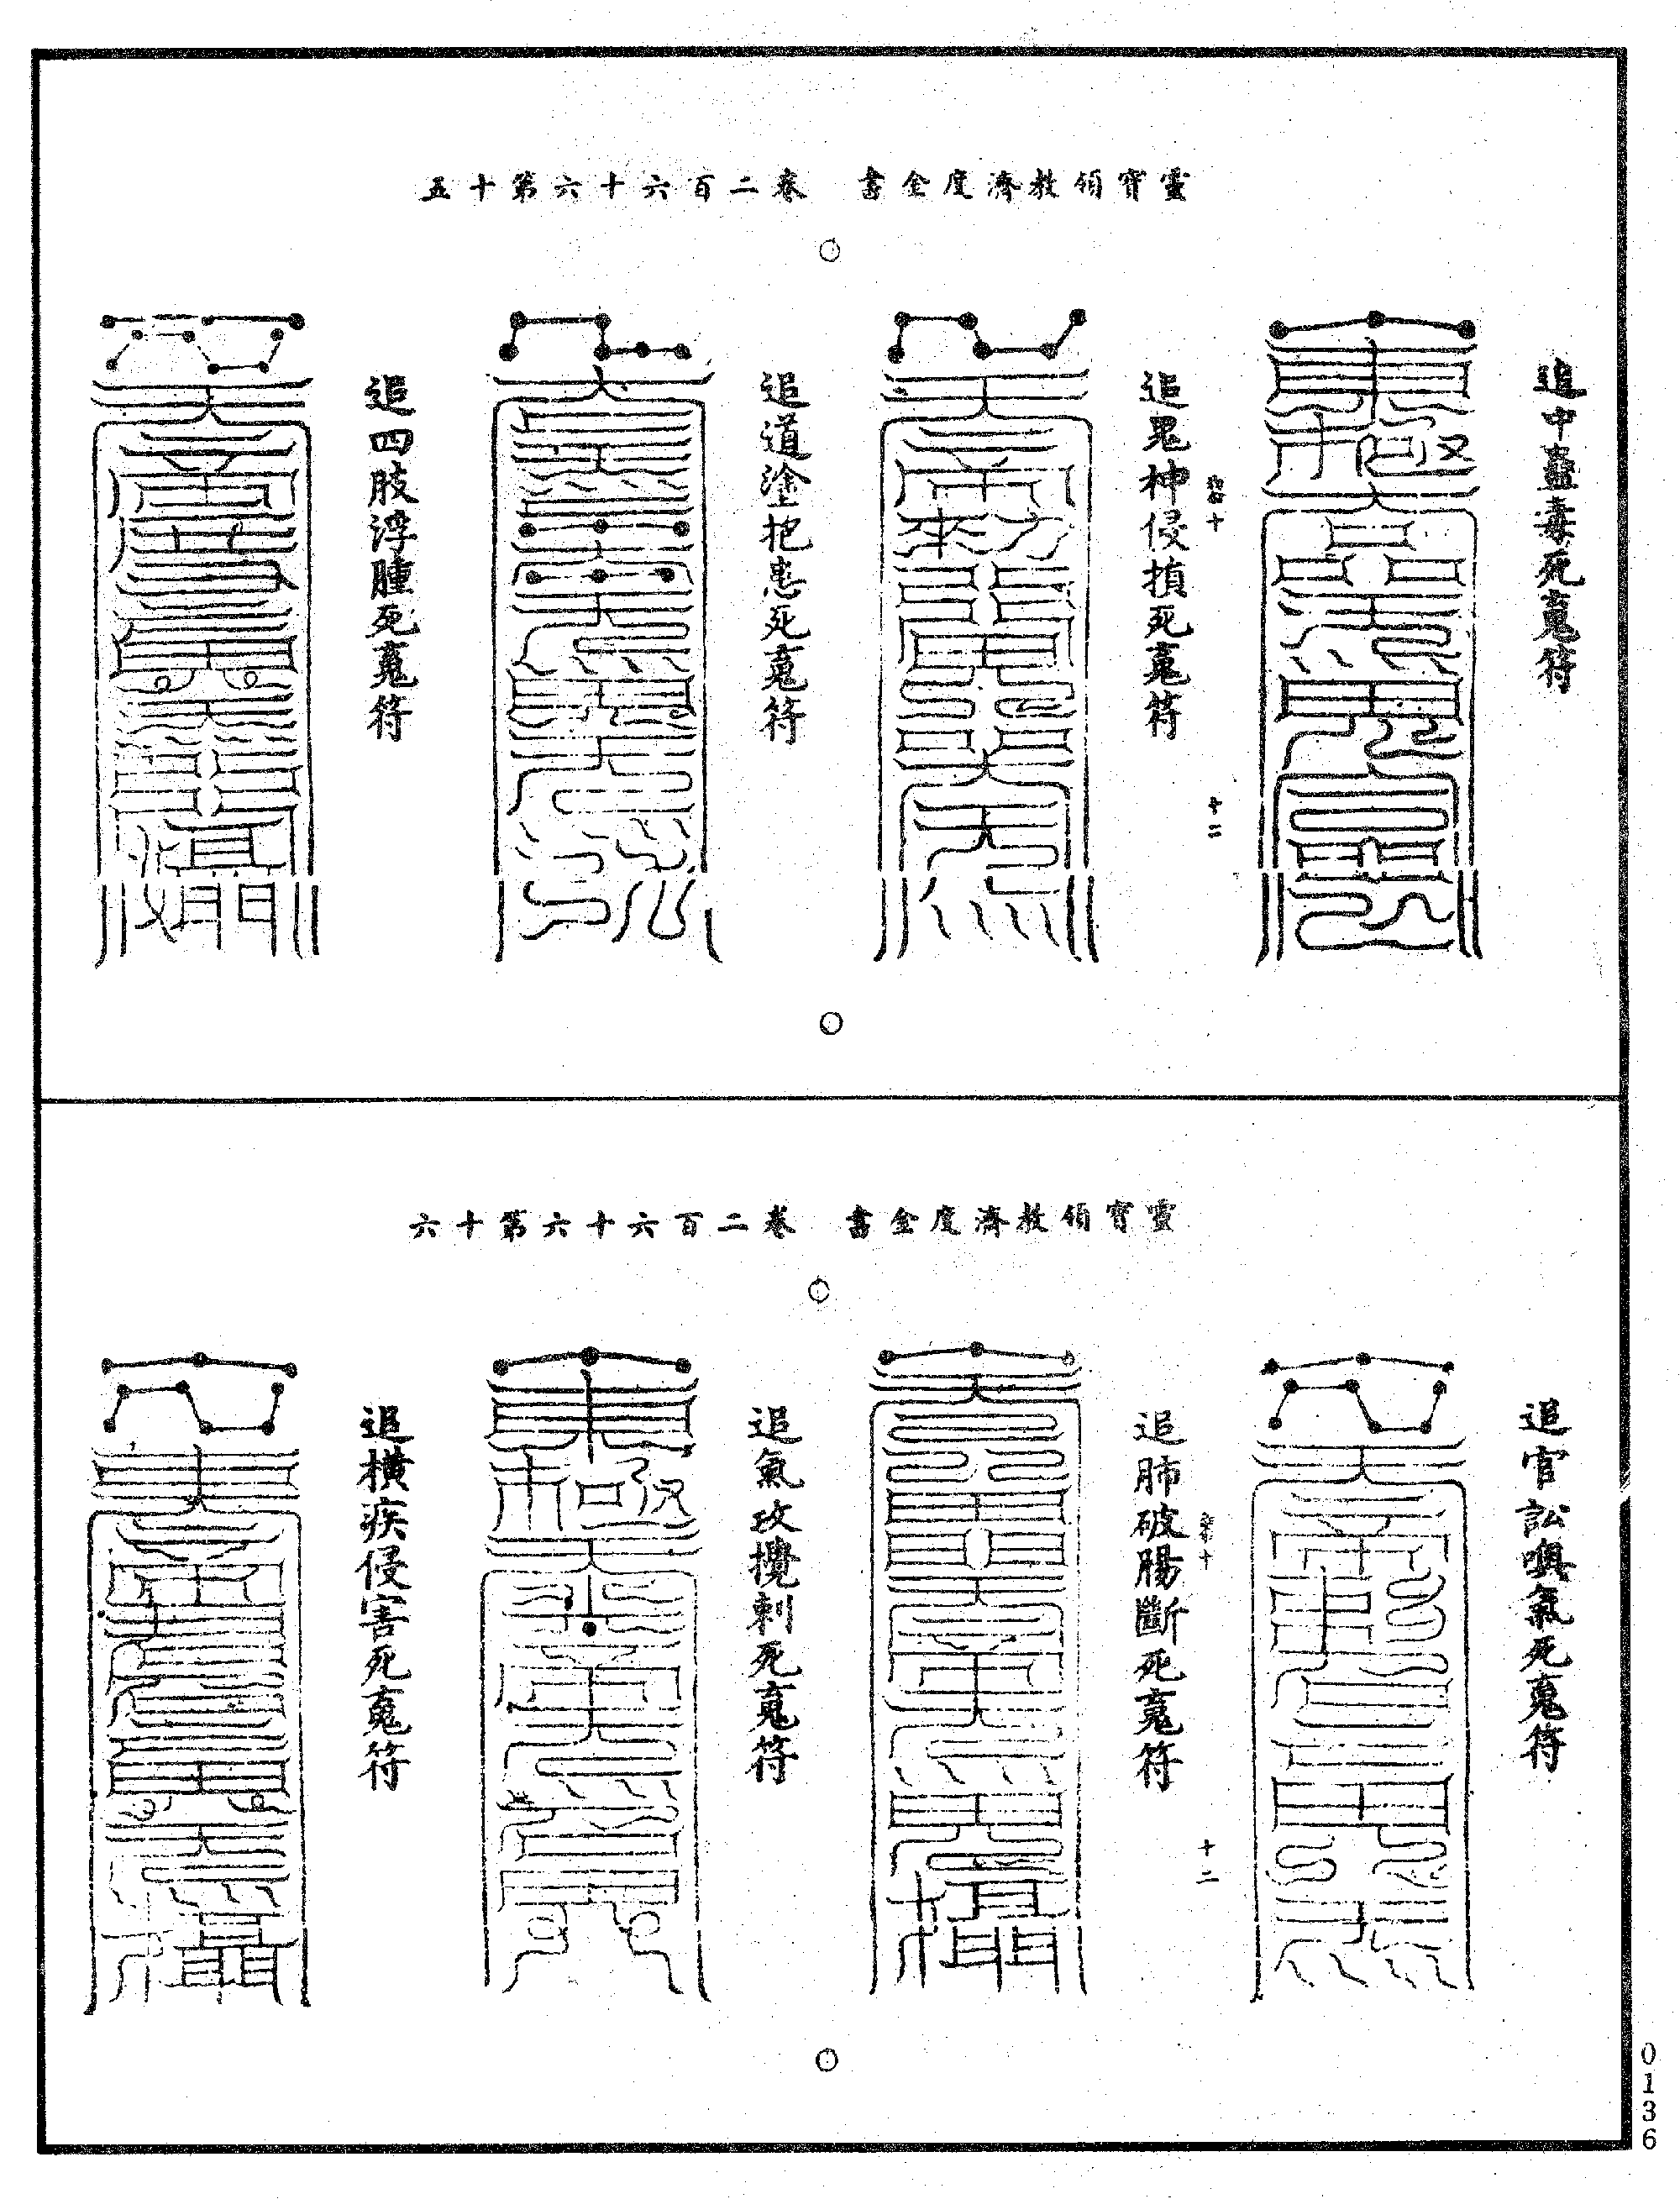 靈寶領教濟度金書　卷二百六十六第十五
追中蠱毒死䰟符
追鬼神侵損死䰟符
十二
追道塗抱患死䰟符
追四肢浮腫死䰟符
靈寶領教濟度金書　卷二百六十六第十六
追官訟嗔氣死䰟符
追肺破腸斷死䰟符
十二
追氣攻攪刺死䰟符
追橫疾侵害死䰟符
0136